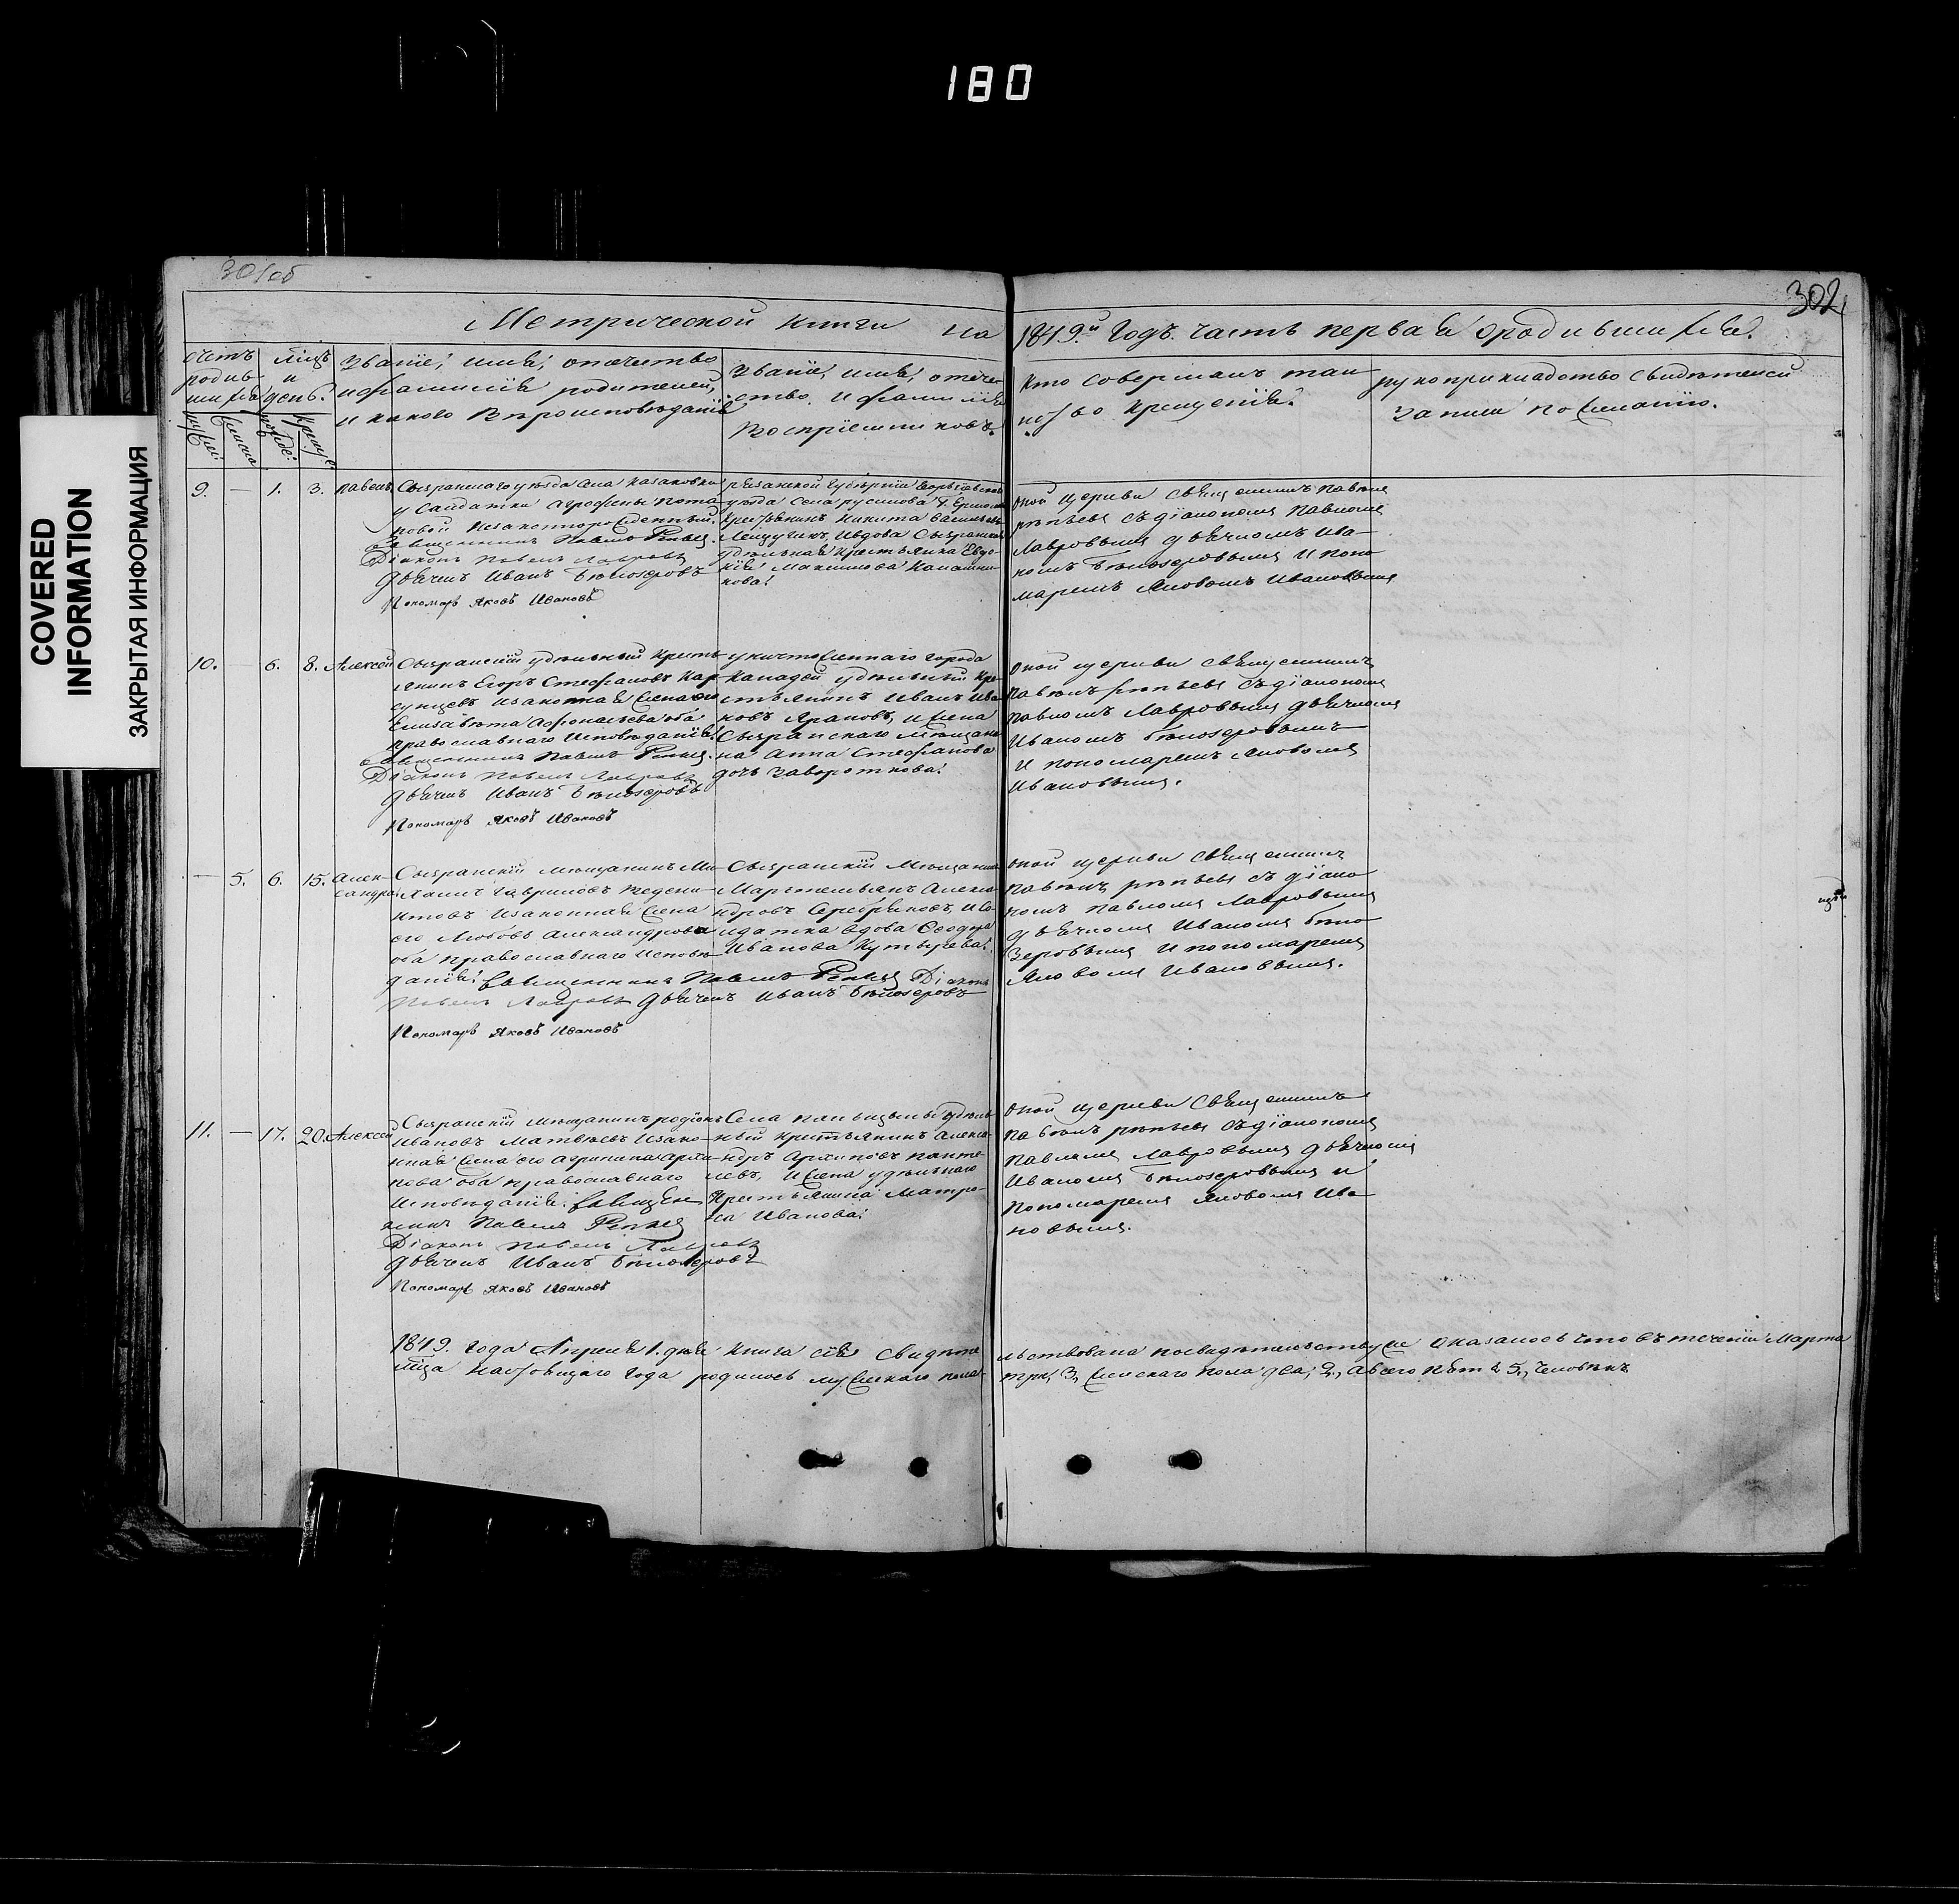 180
COVERED
INFORMATION
ЗАКРЫТАЯ ИНФОРМАЦИЯ
301об
302
Метрической книги на 1849й Годъ. часть первая о родившихся.
Счетъ родившихся
Мѣцъ и день.
Званiе, имя, отчество
и фамилiя родителей,
и какого Вѣроисповѣданiя
Званiе, имя, отече-
ство и фамилiя
Воспрiемниковъ.
Кто совершалъ таи
нство крещенiя.
рукоприкладство свидѣтелей
записи по желанiю.
9. — 1. 3. Павелъ
Сызранскаго уѣзда села Казаковки
у Салдатки Агрофены Пота-
повой незаконнорожденный.
Священникъ Павелъ
Дiаконъ Павелъ Лавровъ
Дьячекъ Иванъ Бѣлозеровъ
Пономарь Яковъ Ивановъ
Рязанской Губернiи
уѣзда Села Русинова
Крестьянинъ Никита Васильевъ
Сызранская
удѣльная Крестьянка Евдо-
кiя Максимова Калашни-
кова.
оной церкви Священникъ Павелъ
съ дiакономъ Павломъ
Лавровымъ дьячкомъ Ива-
номъ Бѣлозеровымъ и поно-
маремъ Яковомъ Ивановымъ
10. — 6. 8. Алексей
Сызранскiй удѣльный Кресть-
янинъ Егоръ Стефановъ Кар-
сунцевъ и законная жена его
Елизавета Афонасьева оба
православнаго исповѣданiя.
Священникъ Павелъ
Дiаконъ Павелъ Лавровъ
Дьячекъ Иванъ Бѣлозеровъ
Пономарь Яковъ Ивановъ
уничтоженнаго города
Канадея удѣльный Кре-
стьянинъ Иванъ Ива-
новъ Араповъ, и жена
Сызранскаго Мѣщани-
на Анна Стефанова
дочь Заворотнова.
оной церкви Священникъ
Павелъ съ дiакономъ
Павломъ Лавровымъ дьячкомъ
Иваномъ Бѣлозеровымъ
и пономаремъ Яковомъ
Ивановымъ.
— 5. 6. 15. Алек-
сандра
Сызранскiй Мѣщанинъ Ми-
хаилъ Гавриловъ
и законная жена
его Любовь Александрова
оба православнаго исповѣ-
данiя. Священникъ Павелъ Дiаконъ
Павелъ Лавровъ Дьячекъ Иванъ Бѣлозеровъ
Пономарь Яковъ Ивановъ
Сызранскiй Мѣщанинъ
Мартемьянъ Алекса-
ндровъ Серебряковъ, и Со-
лдатка вдова Феодора
Иванова Кутырева.
оной церкви Священникъ
Павелъ съ дiако-
номъ Павломъ Лавровымъ
дьячкомъ Иваномъ Бѣло-
зеровымъ и пономаремъ
Яковомъ Ивановымъ.
11. — 17. 20. Алексей
Сызранскiй Мѣщанинъ Родiонъ
Ивановъ Матвѣевъ и зако-
нная жена его Агрипина Архи-
пова оба православнаго
исповѣданiя. Священ-
никъ Павелъ
Дiаконъ Павелъ Лавровъ
Дьячекъ Иванъ Бѣлозеровъ
Пономарь Яковъ Ивановъ
Села удѣль-
ный Крестьянинъ Алекса-
ндръ Архиповъ Панте-
левъ, и жена удѣльнаго
Крестьянина Матре-
на Иванова.
оной церкви Священникъ
Павелъ съ дiакономъ
Павломъ Лавровымъ дьячкомъ
Иваномъ Бѣлозеровымъ и
пономаремъ Яковомъ Ива-
новымъ.
1849. года Апреля 1. дня Книга сiя Свидѣте льствована по свидѣтельству же оказалось что въ теченiи Марта
мѣца настоящаго года родилось мужескаго пола три, 3, женскаго пола два, 2, а всего пять 5, человѣкъ